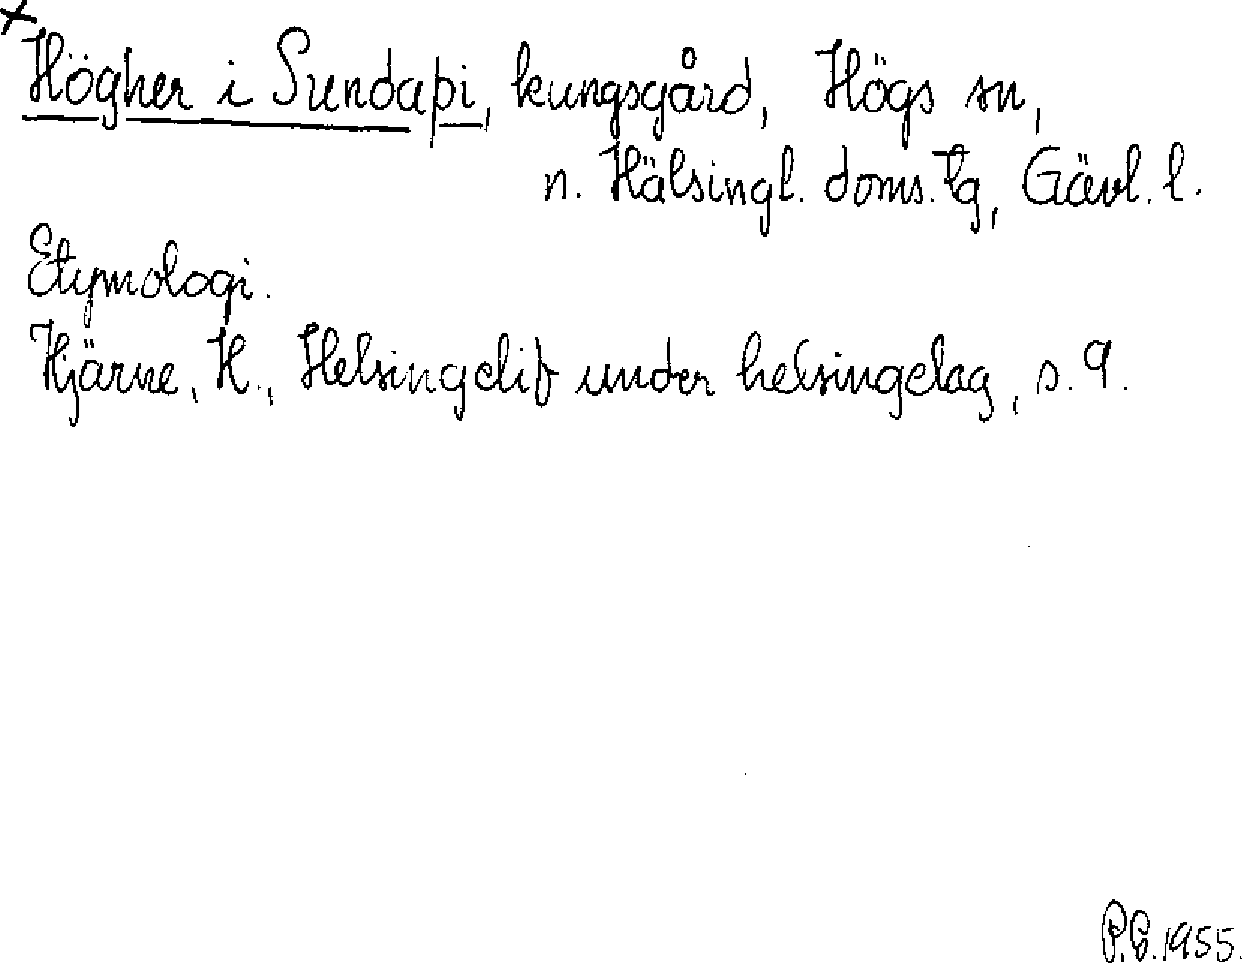 +
Högher i Sundaþi, kungsgård, Högs sn,
n. Hälsingl. doms. tg, Gävl. l.
Etymologi.
Hjärne, H., Helsingelif under helsingelag, s. 9.
P.E. 1955.